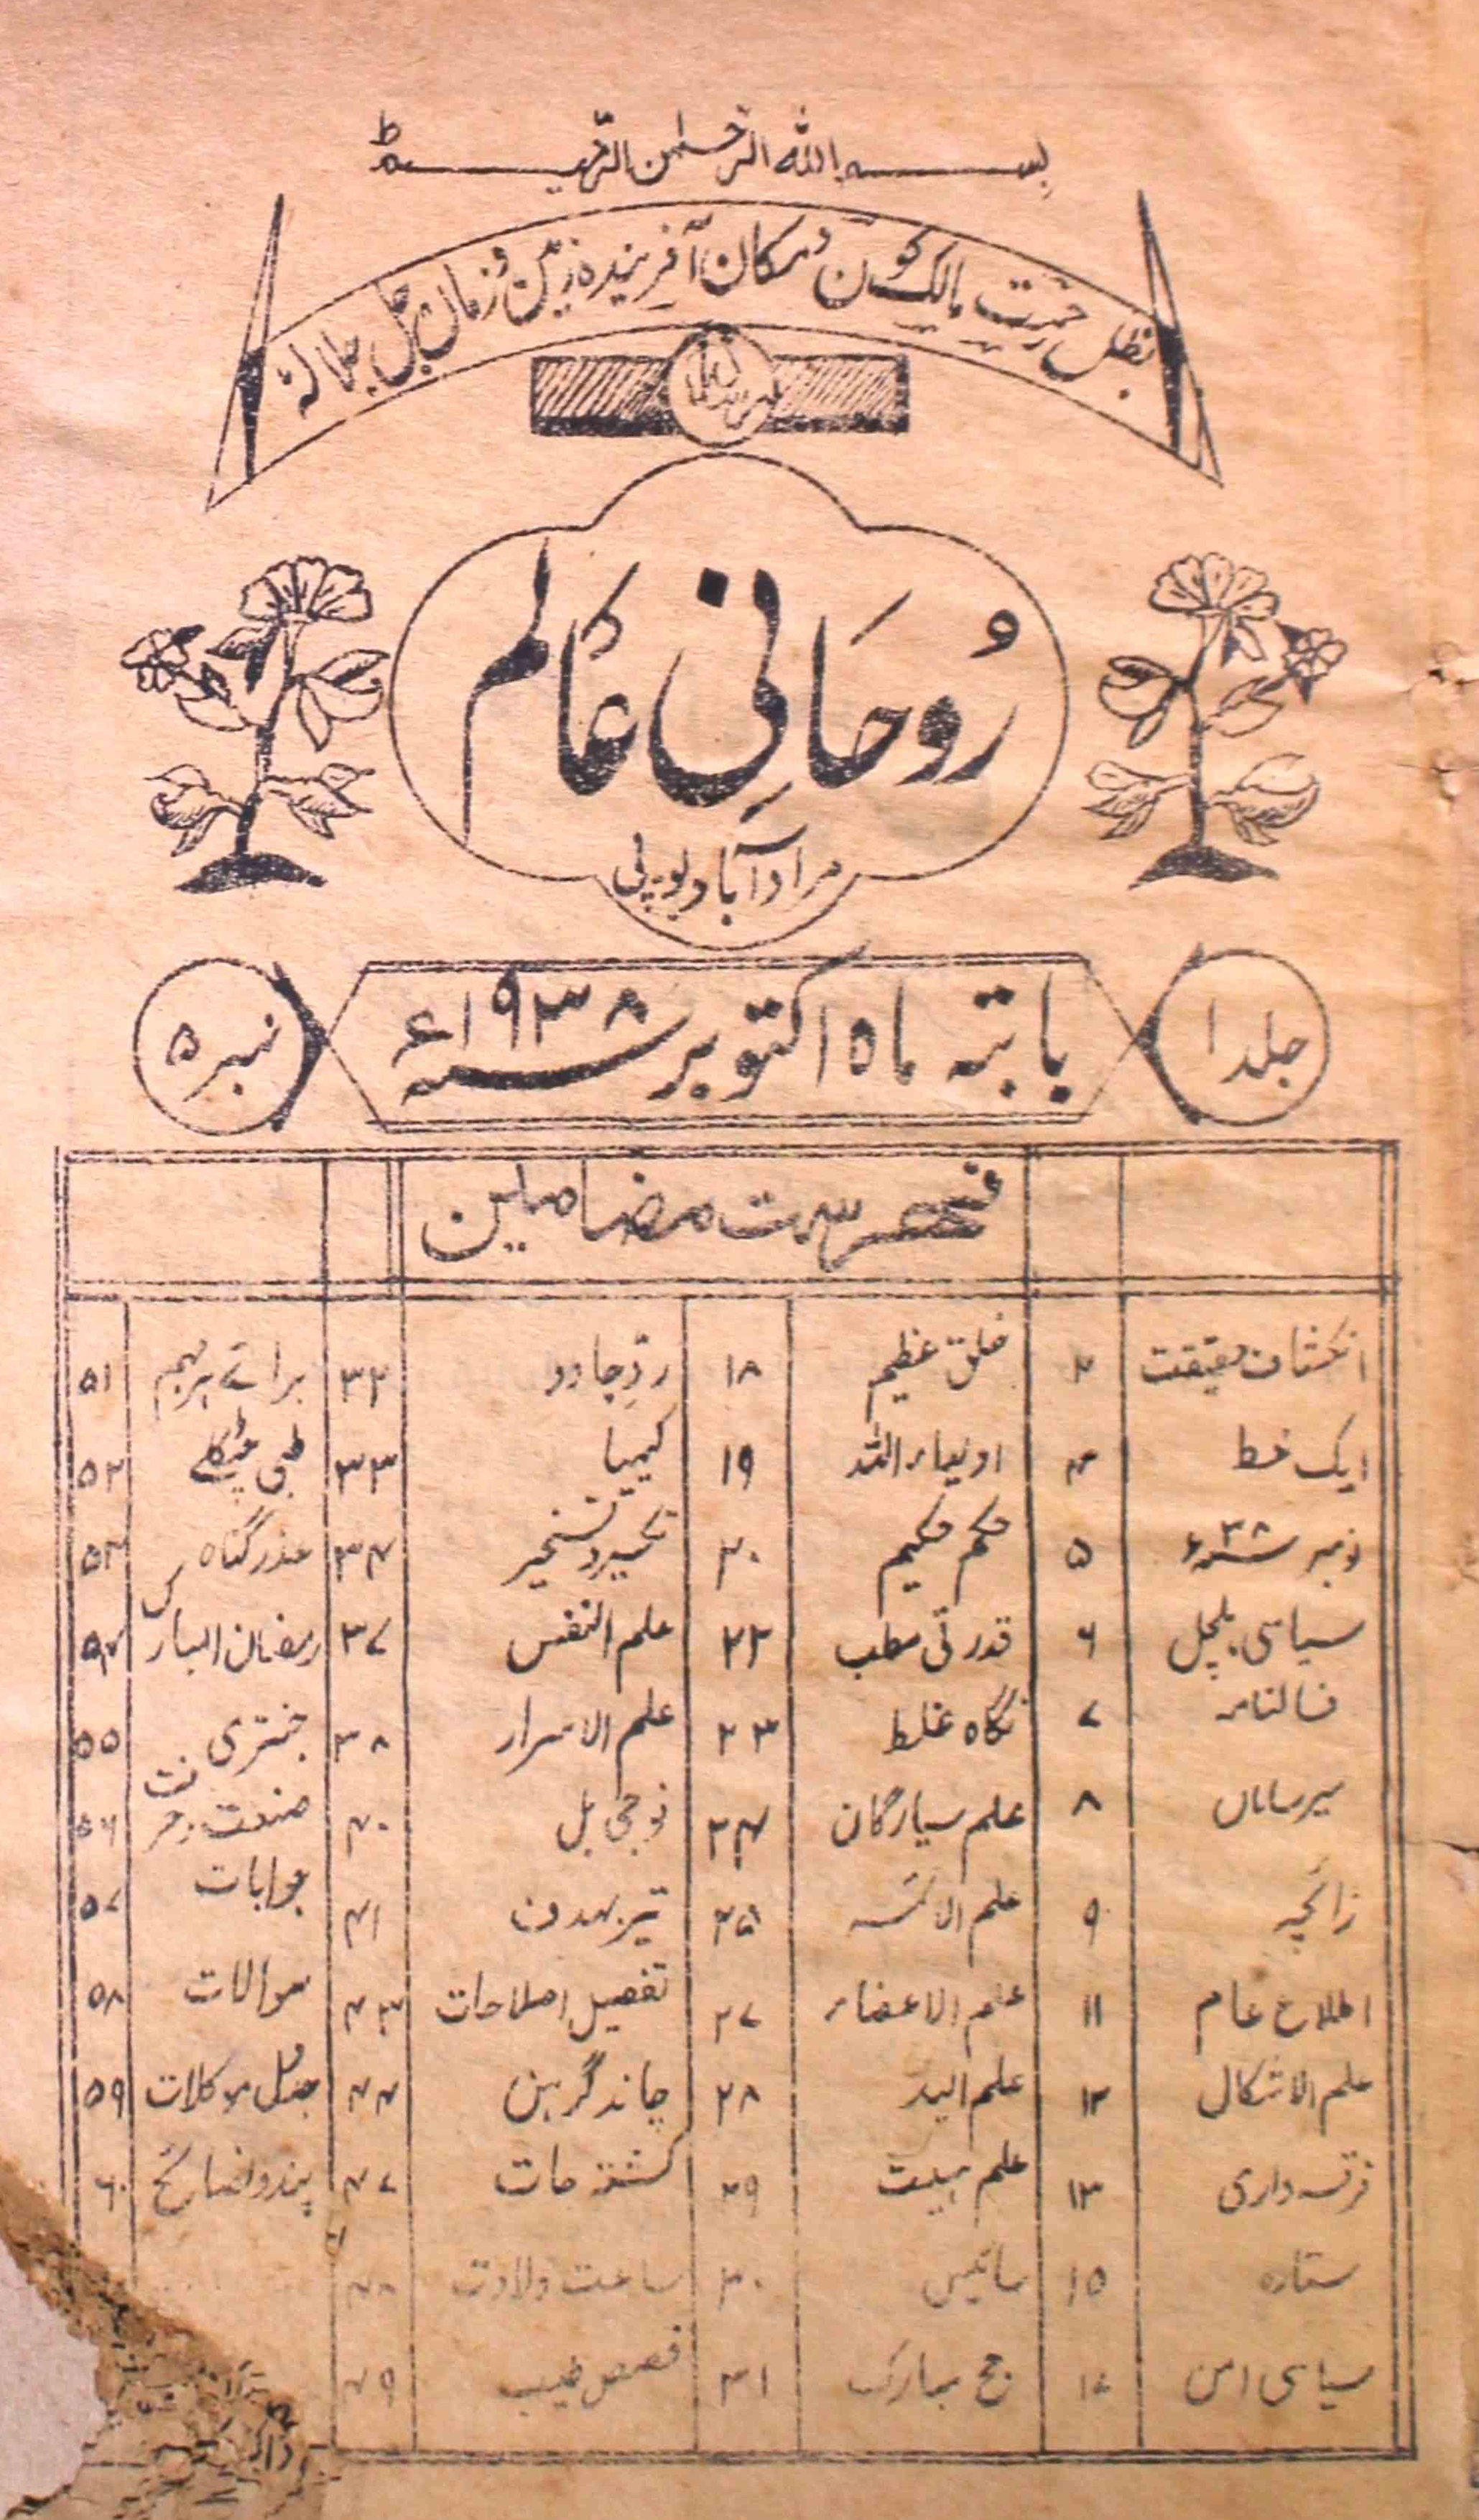 بسم اللہ الرحمٰن الرحیم
بظل حضرت مالک کون و مکان آفرینندہ زمین و زمان جل جلالہٗ
رُوحَانِی عَالَم
مرادآباد یوپی
جلد ۱
بابتہ ماہ اکتوبر ۱۹۳۸ء
نمبر ۵
فہرست مضامین
انکشاف حقیقت ۲ خلق عظیم ۱۸ ردِّ جادو ۳۲ برائے پرہیم ۵۱
ایک خط ۴ اولیاء اللہ ۱۹ کیمیا ۳۳ طبی چٹکلے ۵۲
نومبر ۳۸ء ۵ حکم حکیم ۲۰ تکسیر و تسخیر ۳۴ عذر گناہ ۵۳
سیاسی ہلچل ۶ قدرتی مطب ۲۲ علم النفس ۳۷ رمضان المبارک ۵۴
فالنامہ ۷ نگاہ غلط ۲۳ علم الاسرار ۳۸ جنتری ۵۵
سیر ساماں ۸ علم سیارگان ۲۴ فوجی بل ۴۰ صنعت وحرفت ۵۶
زائچہ ۹ علم الائمہ ۲۵ تیر بہدف ۴۱ جوابات ۵۷
اطلاع عام ۱۱ علم الاعضاء ۲۷ تفصیل اصلاحات ۴۳ سوالات ۵۸
علم الاشکال ۱۲ علم الید ۲۸ چاند گرہن ۴۴ جدل مؤکلات ۵۹
فرقہ داری ۱۳ علم ہیئت ۲۹ کشتہ جات ۴۷ پند و نصائح ۶۰
ستارہ ۱۵ سائنس ۳۰ ساعت ولادت ۴۸
سیاسی امن ۱۷ حج مبارک ۳۱ قصص طیب ۴۹